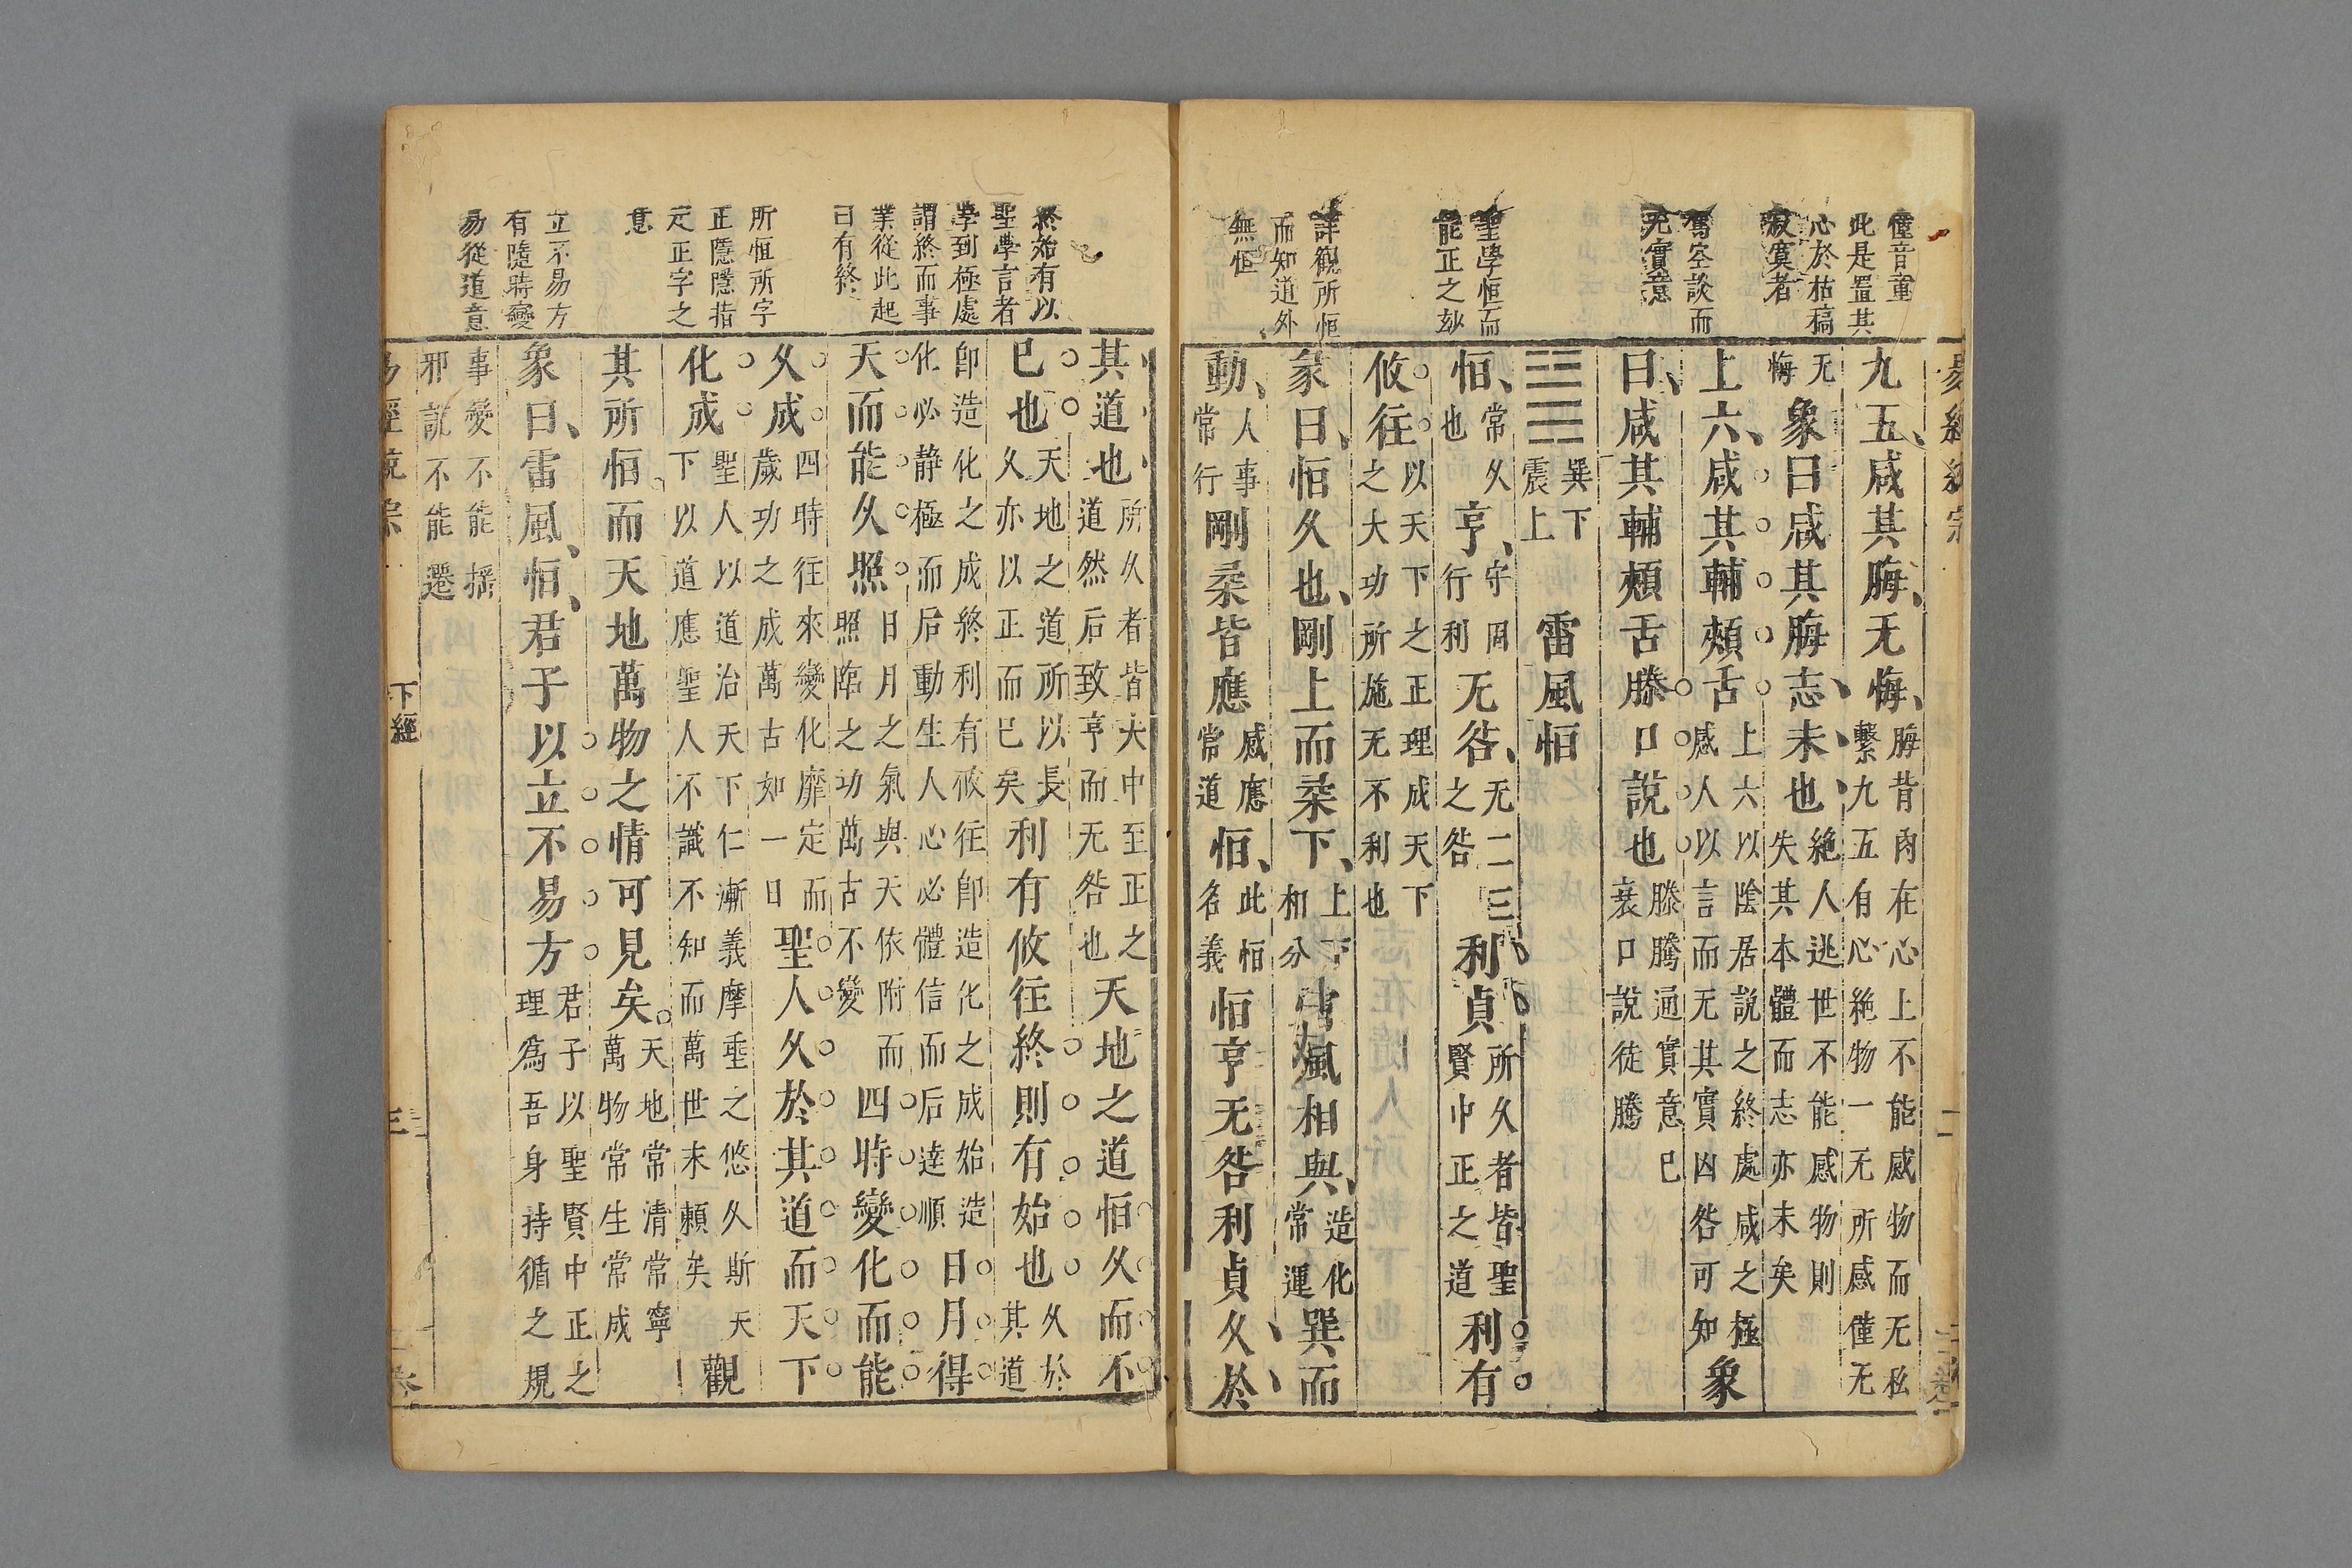 僅音童
此是置其
心於枯稿
寂寞者
篤空談而
无實意
聖學恒而
能正之玅
詳觀所恒
而知道外
無恒
九五、咸其脢、无悔、脢背肉在心上不能感物而无私繫九五有心絶物一无所感僅无
无悔象曰咸其脢志、未、也、絶人逃世不能感物則失其本體而志亦末矣
上六、咸其輔頰舌上六以陰居說之終處咸之極感人以言而无其實凶咎可知象
曰、咸其輔頰舌滕口說也滕騰通實意已衰口說徒騰
巽下震上 雷風恒
恒、常久也亨、守固行利无咎、无二三之咎利貞所久者皆聖賢中正之道利有
攸往以天下之正理成天下之大功所施无不利也
彖曰、恒久也、剛上而柔下、上下相分雷風相與、造化常運巽而
動、人事常行剛柔皆應感應常道恒、此恒名義恒亨无咎利貞久、於、
終始有以
聖學言者
學到極處
謂終而事
業從此起
曰有終
所恒所字
正隱隱指
定正字之
意
立不易方
有隨時變
易從道意
其道也所久者皆大中至正之道然后致亨而无咎也天地之道恒久而不
已也天地之道所以長久亦以正而已矣利有攸往終則有始也久於其道
卽造化之成終利有攸往卽造化之成始造化必静極而后動生人心必體信而后達順日月得
天而能久照日月之氣與天依附而照臨之功萬古不變四時變化而能
久成四時往來變化靡定而歲功之成萬古如一日聖人久於其道而天下
化成聖人以道治天下仁漸義摩垂之悠久斯天下以道應聖人不識不知而萬世末賴矣觀
其所恒而天地萬物之情可見矣天地常清常寧萬物常生常成
象曰、雷風、恒、君子以立不易方君子以聖賢中正之理爲吾身持循之規
事變不能搖邪說不能遷
下經